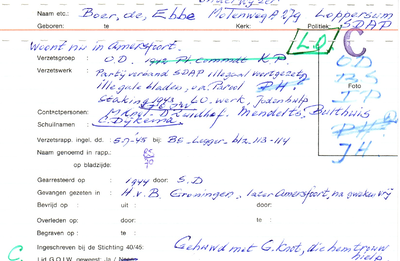 Naam etc.: Boer, de, Ebbe Molenweg A 279 Loppersum
Geboren: te Kerk: Politiek: SDAP
L.O. C
Woont nu in Amersfoort.
Verzetsgroep : O.D. K.P. O.D
Verzetswerk : Partijverband SDAP illegaal voortgezet
Foto
illegale bladen, o.a. Parool
Staking 1943 L.O. werk, Jodenhulp
Contactpersonen: Mendelts, Bulthuis
Schuilnamen : C. Dijkema
J H
Verzetsrap. ingel. dd.: 5-7-45 bij: BS-Logger, blz. 113-114
Naam genoemd in rapp.:
op bladzijde:
Gearresteerd op : 1944 door: S.D
Gevangen gezeten in : H.v.B. Groningen, later Amersfoort, na
Bevrijd op : uit : door:
Overleden op: door: te :
Begraven op : te :
Ingeschreven bij de Stichting 40/45: Gehuwd met G. Knot, die hem trouw
C. hielp.